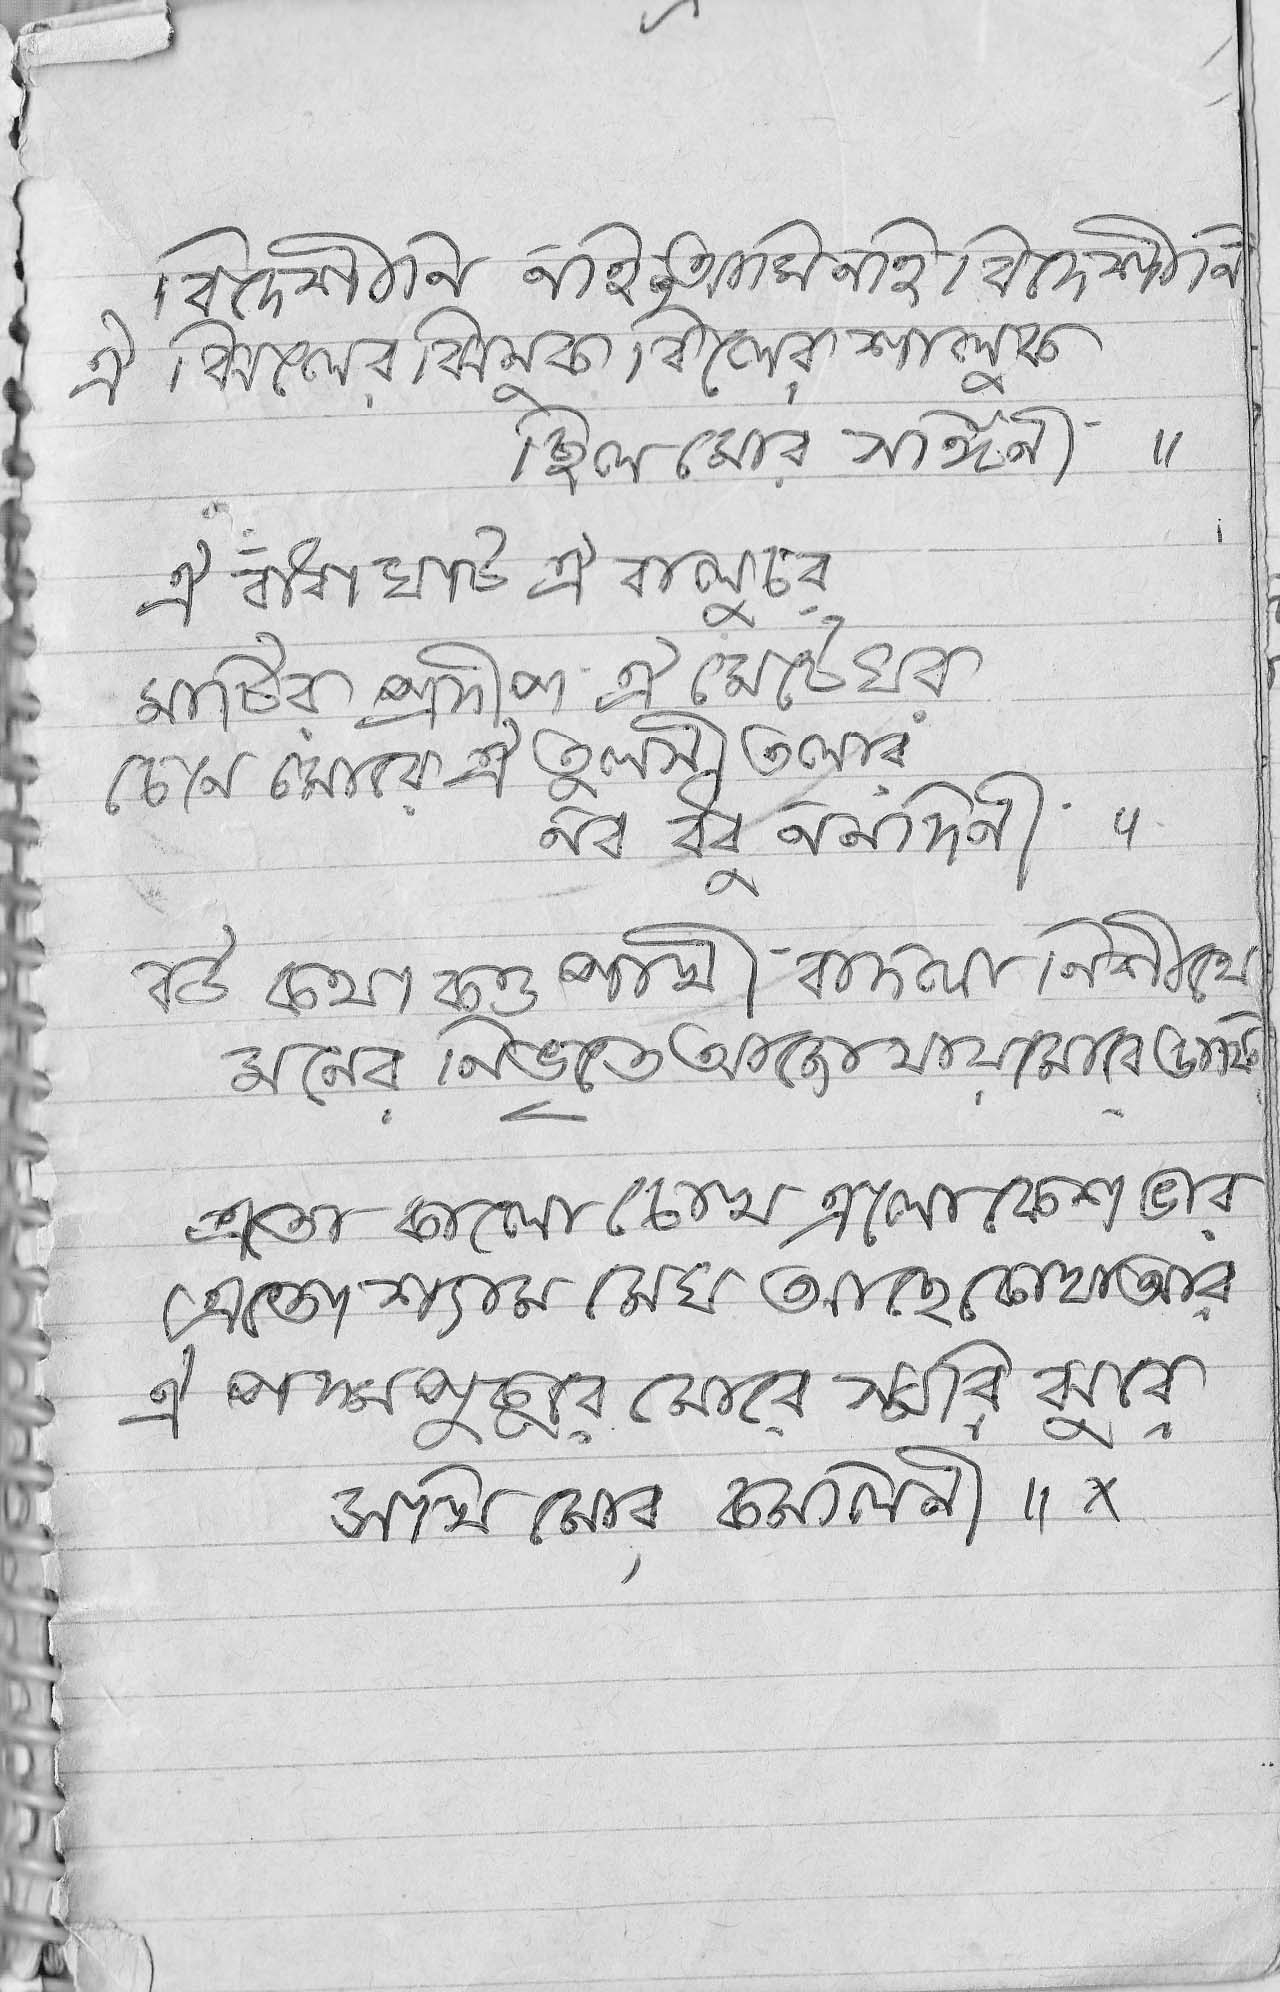 বিদেশীনি নাই আমি নাই বিদেশীনি
ঐ ঝিলের ঝিনুক বিলের শালুক
ছিল মোর সাঙ্গনী ॥
ঐ বাঁধা ঘাট ঐ বালুচর
মাটির প্রদীপ ঐ মেটে ঘর
চেনে মোরে ঐ তুলসী তলার
নব বধু ননদিনী ॥
বউ কথা কও পাখী বাদলা নিশীথে
মনের নিভৃতে আজো যায় মোরে ডাকি
এতো কালো চোখ এলো কেশ ভার
এতো শ্যাম মেঘ আছে কোথা আর
ঐ পদ্মপুকুর মোরে স্মরি ঝুরে
সখি মোর কমলিনী ॥ x